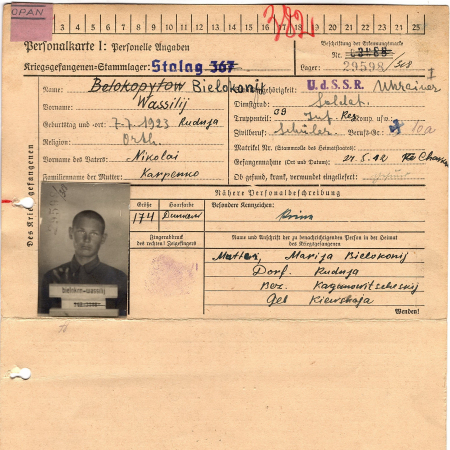 OPAN
1 2 3 4 5 6 7 8 9 10 11 12 13 14 15 16 17 18 19 20 21 22 23 24 25
Personalkarte I: Personelle Angaben
Kriegsgefangenen-Stammlager: Stalag 367
Beschriftung der Erkennungsmarke
Nr. 29598
Lager:
Des Kriegsgefangenen
Name: Belokopytow Bielokonij
Vorname: Wassilij
Geburtstag und -ort: 7.7.1923 Rudnja
Religion: Orth.
Vorname des Vaters: Nikolai
Familienname der Mutter: Karpenko
Staatsangehörigkeit: U.d.S.S.R. Ukrainer
Dienstgrad: Soldat
Truppenteil: Inf. Reg. Komp. usw.:
Zivilberuf: Schüler Berufs-Gr.: 10a
Matrikel Nr. (Stammrolle des Heimatstaates):
Gefangennahme (Ort und Datum): 27.5.42
Ob gesund, krank, verwundet eingeliefert:
Nähere Personalbeschreibung
Größe
Haarfarbe
Besondere Kennzeichen:
174
Fingerabdruck
des rechten! Zeigefingers
Name und Anschrift der zu benachrichtigenden Person in der Heimat
des Kriegsgefangenen
Mutter, Marija Bielokonij
Dorf. Rudnja
Bez. Kaganowitscheskij
Geb Kiewskaja
Wenden!